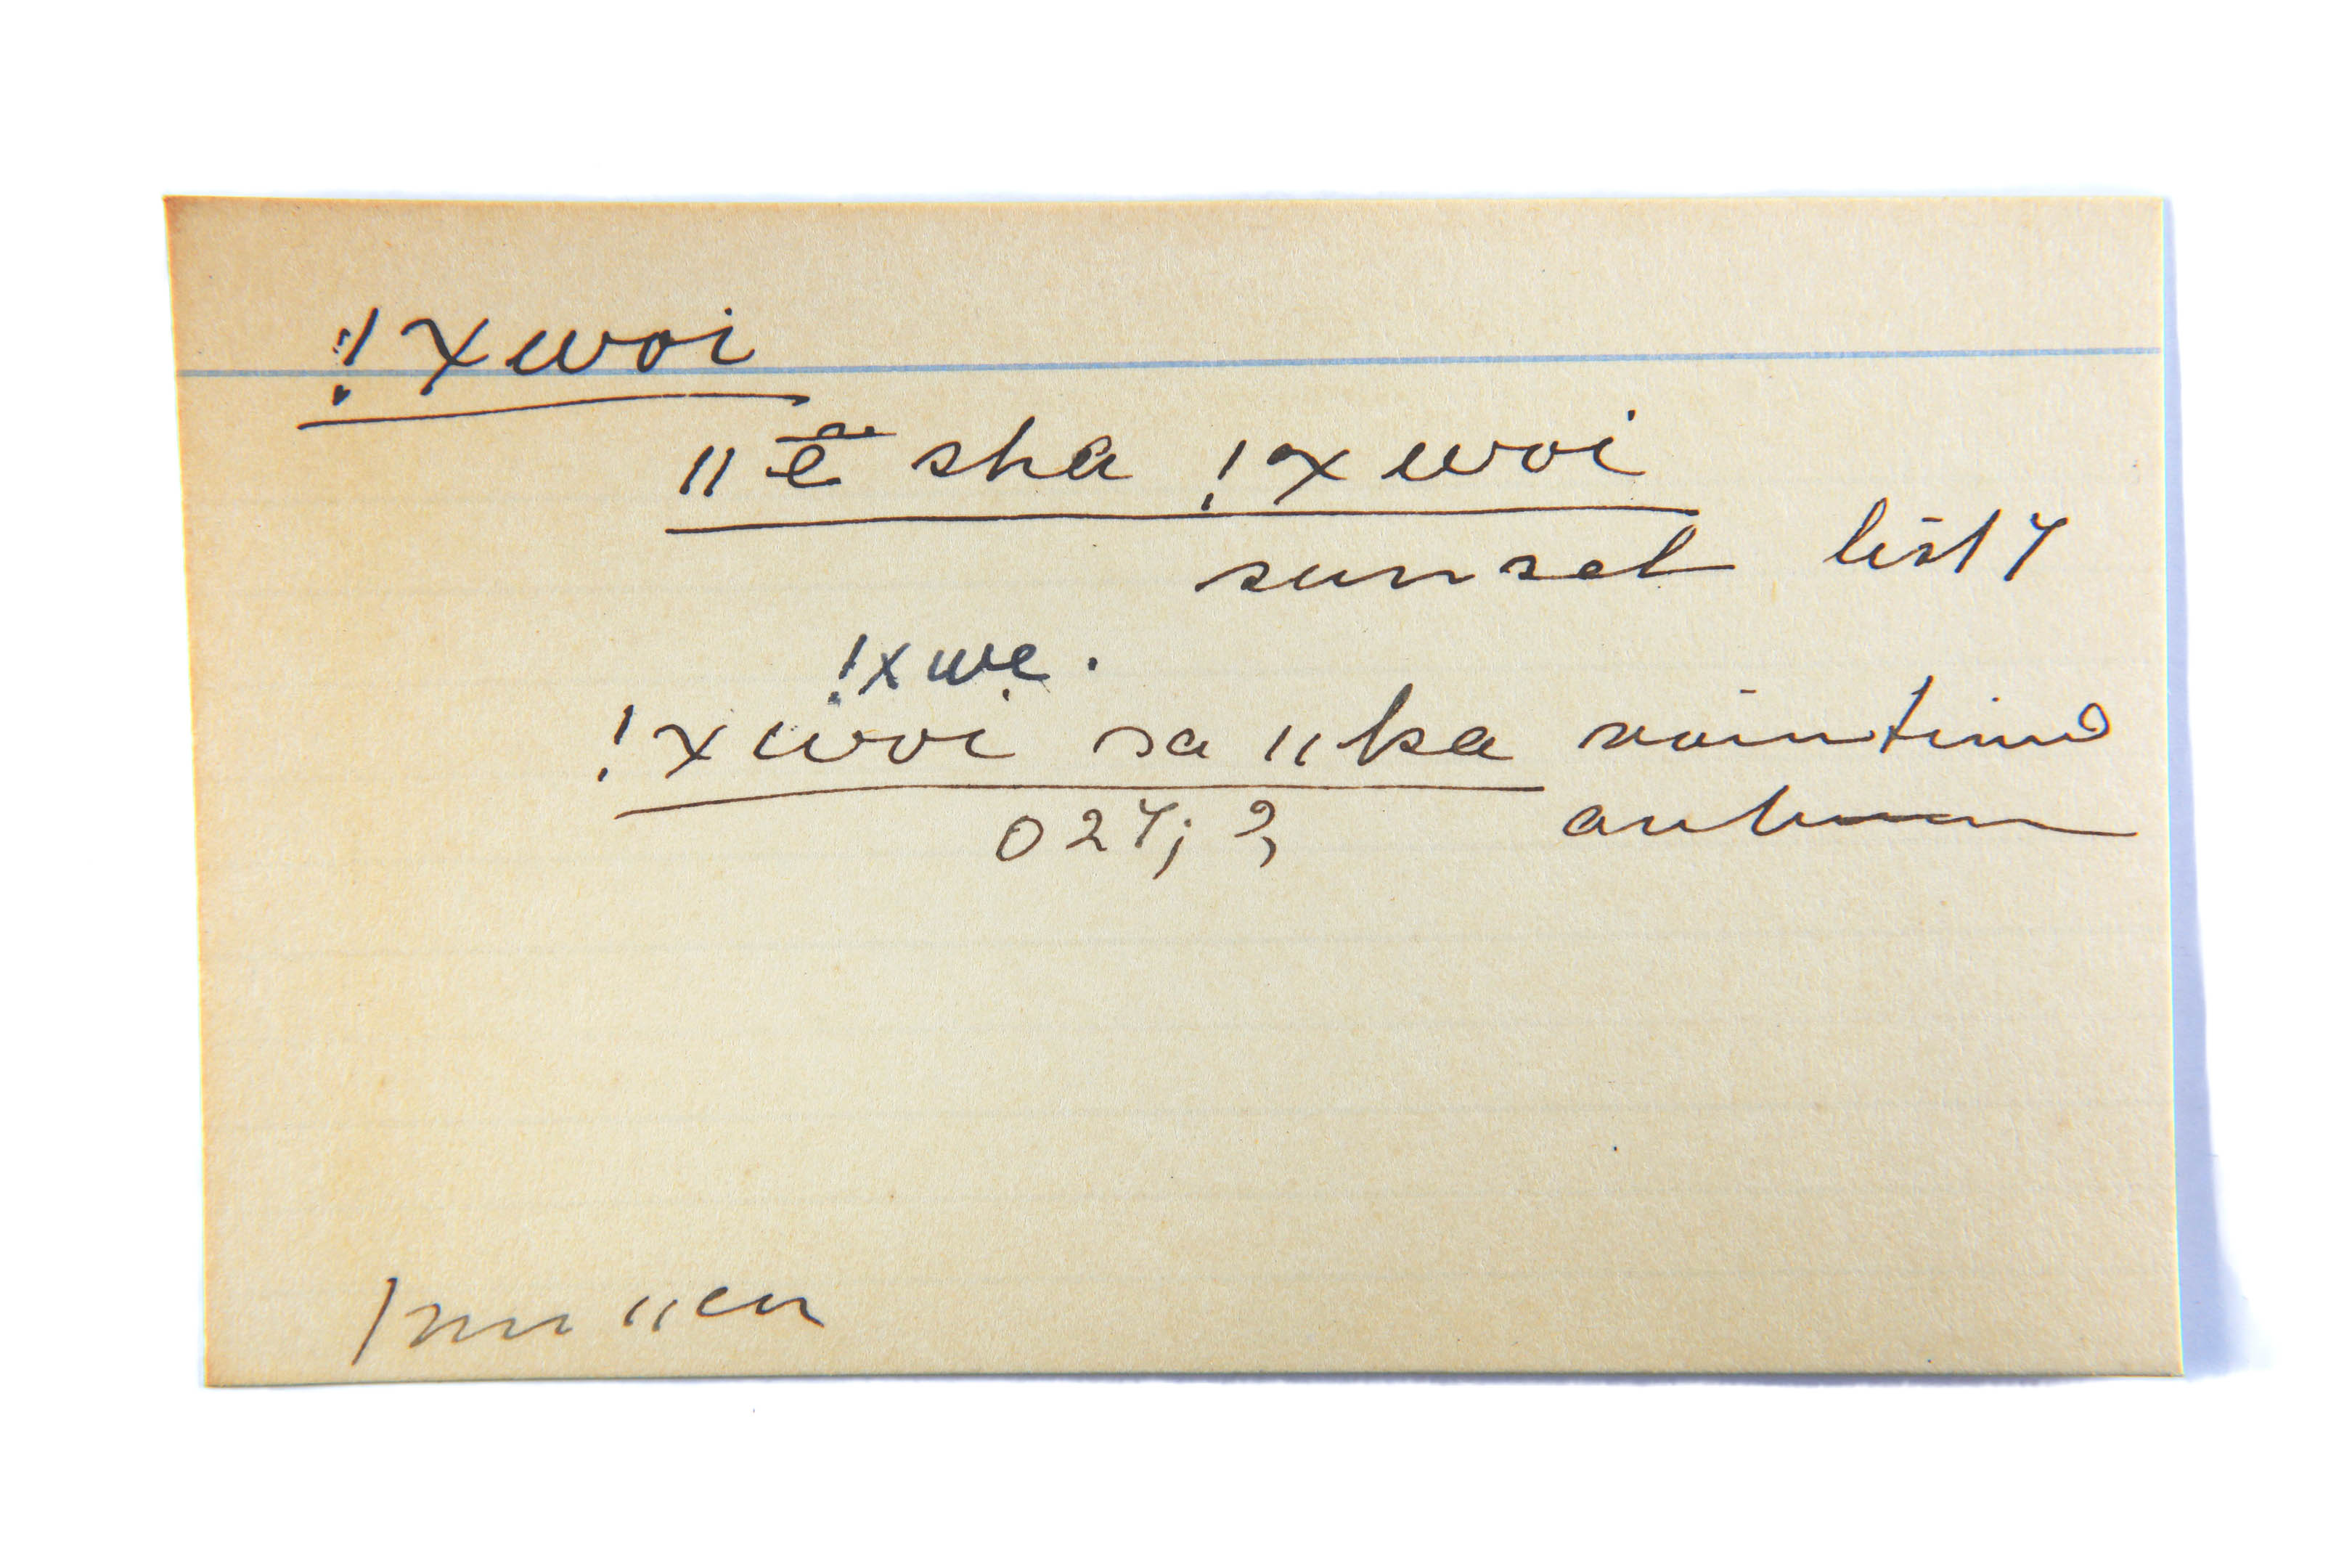 !xwoi
ǁẽ̄ sha !xwoi
sunset list 7
!xwe.
!xwoi sa ǁka raintime
027; 2, autumn
|nu ǁen